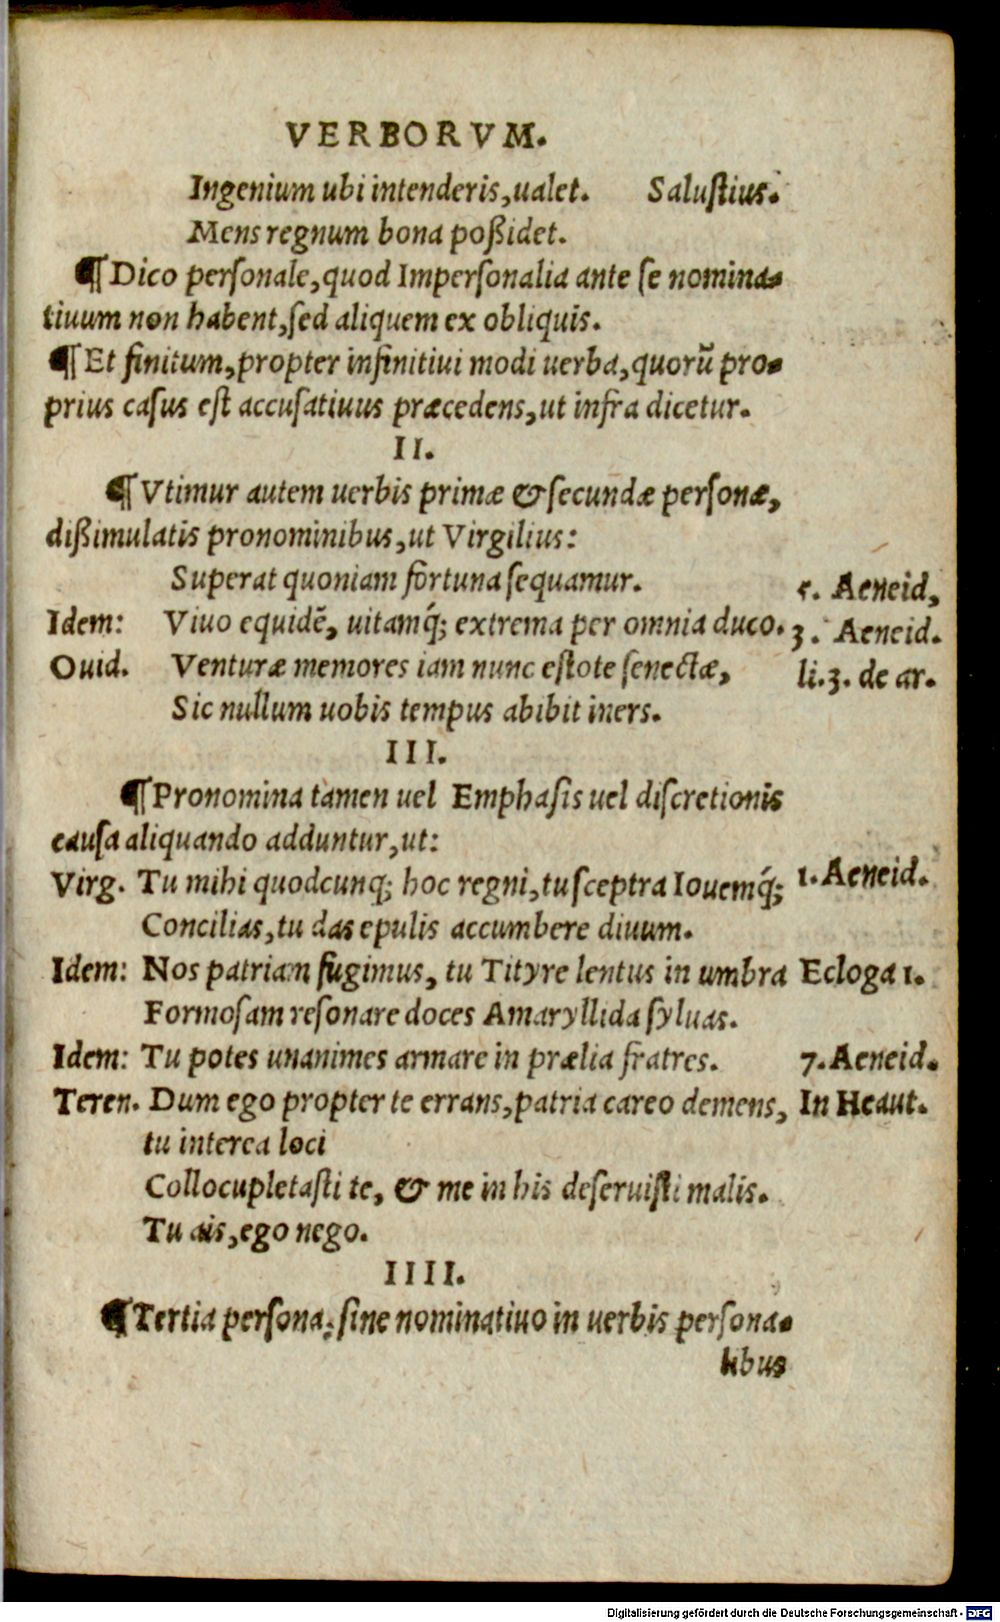 VERBORVM.
Ingenium ubi intenderis,ualet. Salustius.
Mens regnum bona poßidet.
¶Dico personale,quod Impersonalia ante se nomina-
tiuum non habent,sed aliquem ex obliquis.
¶Et finitum,propter infinitiui modi uerba,quorũ pro-
prius casus est accusatiuus præcedens,ut infra dicetur.
II.
¶Vtimur autem uerbis primæ & secundæ personæ,
dißimulatis pronominibus,ut Virgilius:
Superat quoniam fortuna sequamur. 5. Aeneid,
Idem: Viuo equidẽ, uitamq́; extrema per omnia duco. 3. Aeneid.
Ouid. Venturæ memores iam nunc estote senectæ, li.3. de ar.
Sic nullum uobis tempus abibit iners.
III.
¶Pronomina tamen uel Emphasis uel discretionis
causa aliquando adduntur,ut:
Virg. Tu mihi quodcunq; hoc regni,tu sceptra Iouemq́; 1. Aeneid.
Concilias,tu das epulis accumbere diuum.
Idem: Nos patriam fugimus, tu Tityre lentus in umbra Ecloga 1.
Formosam resonare doces Amaryllida syluas.
Idem: Tu potes unanimes armare in prælia fratres. 7. Aeneid.
Teren. Dum ego propter te errans,patria careo demens, In Heaut.
tu interea loci
Collocupletasti te, & me in his deseruisti malis.
Tu ais,ego nego.
IIII.
¶Tertia persona; sine nominatiuo in uerbis persona-
libus
Digitalisierung gefördert durch die Deutsche Forschungsgemeinschaft - DFG